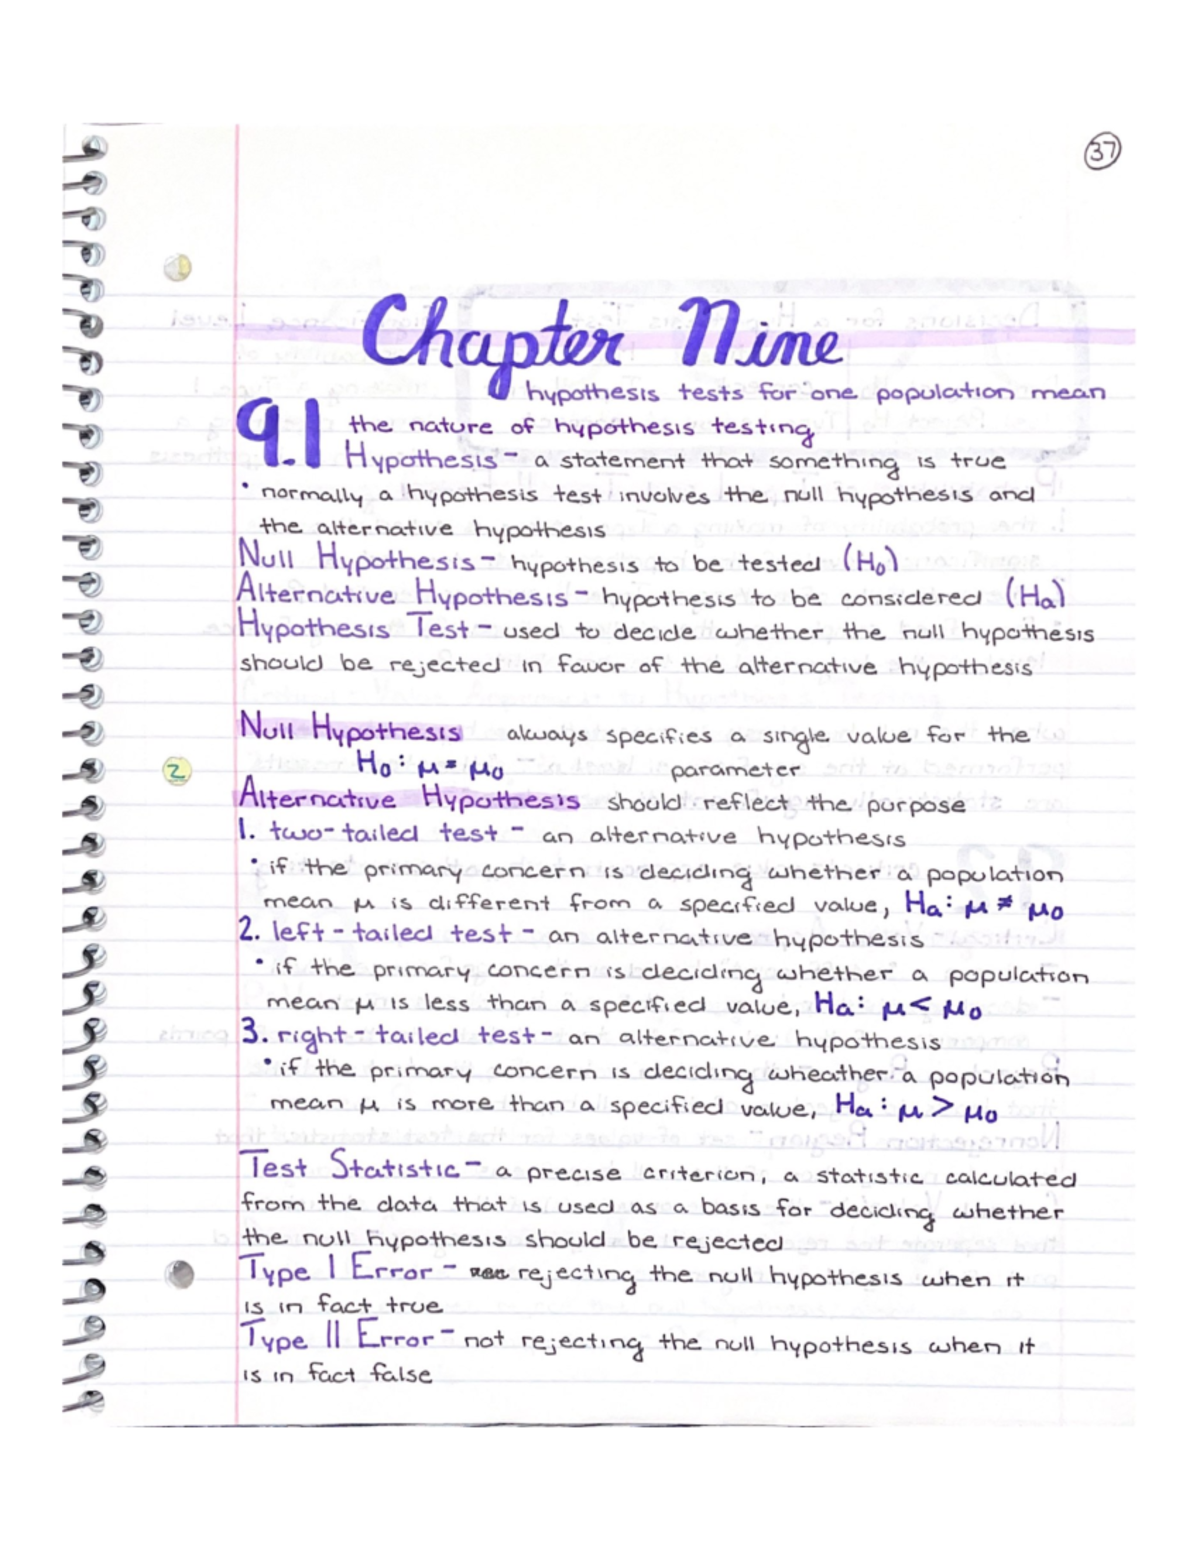 37
Chapter Nine
hypothesis tests for one population mean
9.1 the nature of hypothesis testing
Hypothesis - a statement that something is true
• normally a hypothesis test involves the null hypothesis and
the alternative hypothesis
Null Hypothesis - hypothesis to be tested (H₀)
Alternative Hypothesis - hypothesis to be considered (Ha)
Hypothesis Test - used to decide whether the null hypothesis
should be rejected in favor of the alternative hypothesis
Null Hypothesis always specifies a single value for the
H₀: μ = μ₀ parameter
2
Alternative Hypothesis should reflect the purpose
1. two-tailed test - an alternative hypothesis
• if the primary concern is deciding whether a population
mean μ is different from a specified value, Ha: μ ≠ μ₀
2. left-tailed test - an alternative hypothesis
• if the primary concern is deciding whether a population
mean μ is less than a specified value, Ha: μ < μ₀
3. right-tailed test - an alternative hypothesis
• if the primary concern is deciding wheather a population
mean μ is more than a specified value, Ha: μ > μ₀
Test Statistic - a precise criterion, a statistic calculated
from the data that is used as a basis for deciding whether
the null hypothesis should be rejected
Type I Error - rejecting the null hypothesis when it
is in fact true
Type II Error - not rejecting the null hypothesis when it
is in fact false